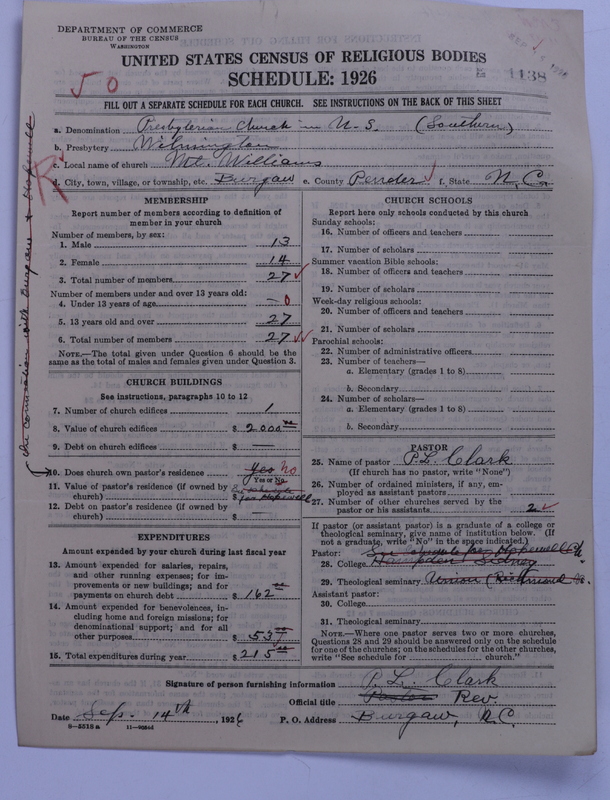 DEPARTMENT OF COMMERCE
BUREAU OF THE CENSUS
WASHINGTON
UNITED STATES CENSUS OF RELIGIOUS BODIES
SCHEDULE: 1926
1138
50
FILL OUT A SEPARATE SCHEDULE FOR EACH CHURCH. SEE INSTRUCTIONS ON THE BACK OF THIS SHEET
a. Denomination Presbyterian Church in U.S. (Southern)
b. Presbytery Wilmington
c. Local name of church Mt. Williams
d. City, town, village, or township, etc. Burgaw e. County Pender f. State N.C.
In connection with Burgaw & Hopewell
MEMBERSHIP
Report number of members according to definition of
member in your church
Number of members, by sex:
1. Male 13
2. Female 14
3. Total number of members 27
Number of members under and over 13 years old:
4. Under 13 years of age — 0
5. 13 years old and over 27
6. Total number of members 27
NOTE.—The total given under Question 6 should be
the same as the total of males and females given under Question 3.
CHURCH BUILDINGS
See instructions, paragraphs 10 to 12
7. Number of church edifices 1
8. Value of church edifices $ 2000
9. Debt on church edifices $ —
10. Does church own pastor's residence Yes No
Yes or No
11. Value of pastor's residence (if owned by
church) $ for Hopewell
12. Debt on pastor's residence (if owned by
church) $ —
EXPENDITURES
Amount expended by your church during last fiscal year
13. Amount expended for salaries, repairs,
and other running expenses; for im-
provements or new buildings; and for
payments on church debt $ 162
14. Amount expended for benevolences, in-
cluding home and foreign missions; for
denominational support; and for all
other purposes $ 53
15. Total expenditures during year $ 215
CHURCH SCHOOLS
Report here only schools conducted by this church
Sunday schools:
16. Number of officers and teachers
17. Number of scholars
Summer vacation Bible schools:
18. Number of officers and teachers
19. Number of scholars
Week-day religious schools:
20. Number of officers and teachers
21. Number of scholars
Parochial schools:
22. Number of administrative officers
23. Number of teachers—
a. Elementary (grades 1 to 8)
b. Secondary
24. Number of scholars—
a. Elementary (grades 1 to 8)
b. Secondary
PASTOR
25. Name of pastor P.L. Clark
(If church has no pastor, write "None")
26. Number of ordained ministers, if any, em-
ployed as assistant pastors
27. Number of other churches served by the
pastor or his assistants 2
If pastor (or assistant pastor) is a graduate of a college or
theological seminary, give name of institution below. (If
not a graduate, write "No" in the space indicated.)
Pastor: See schedule for Hopewell Ch.
28. College Hampden Sidney
29. Theological seminary Union (Richmond Va.
Assistant pastor:
30. College
31. Theological seminary
NOTE.—Where one pastor serves two or more churches,
Questions 28 and 29 should be answered only on the schedule
for one of the churches; on the schedules for the other churches,
write "See schedule for church."
Signature of person furnishing information P.L. Clark
Official title Pastor Rev.
Date Sep. 14th, 1926 P. O. Address Burgaw, N.C.
8-5518a